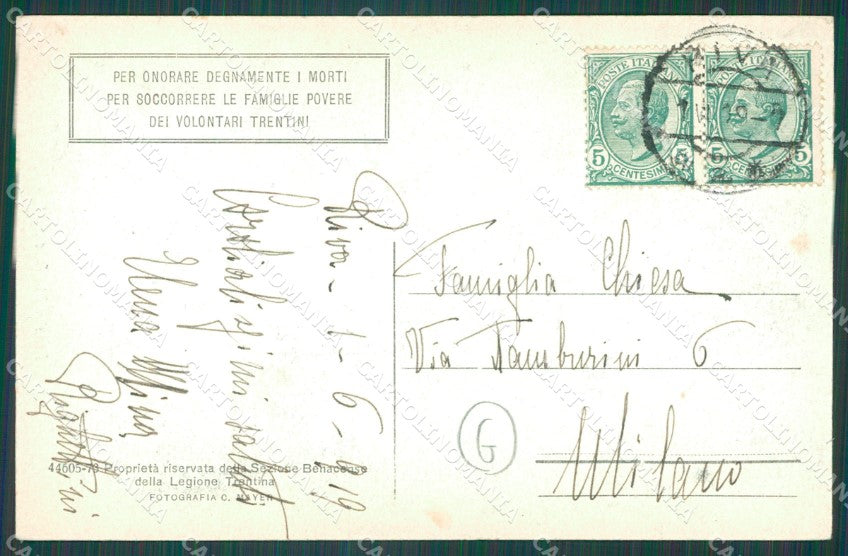 PER ONORARE DEGNAMENTE I MORTI
PER SOCCORRERE LE FAMIGLIE POVERE
DEI VOLONTARI TRENTINI
POSTE ITALIANE
5 5
CENTESIMI
POSTE ITALIANE
5 5
CENTESIMI
RIVA
Riva - 1 - 6 - 919
Cordialissimi saluti
Elena Mina
Famiglia Chiesa
Via Tamburini 6
Milano
G
44605-79 Proprietà riservata della Sezione Benacense
della Legione Trentina
FOTOGRAFIA C. MAYER
CARTOLINOMANIA